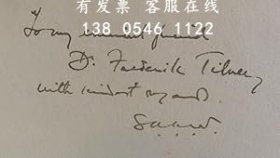 有发票 客服在线
138 0546 1122
To my
Dr. Frederick Tilney
with kindest regards.